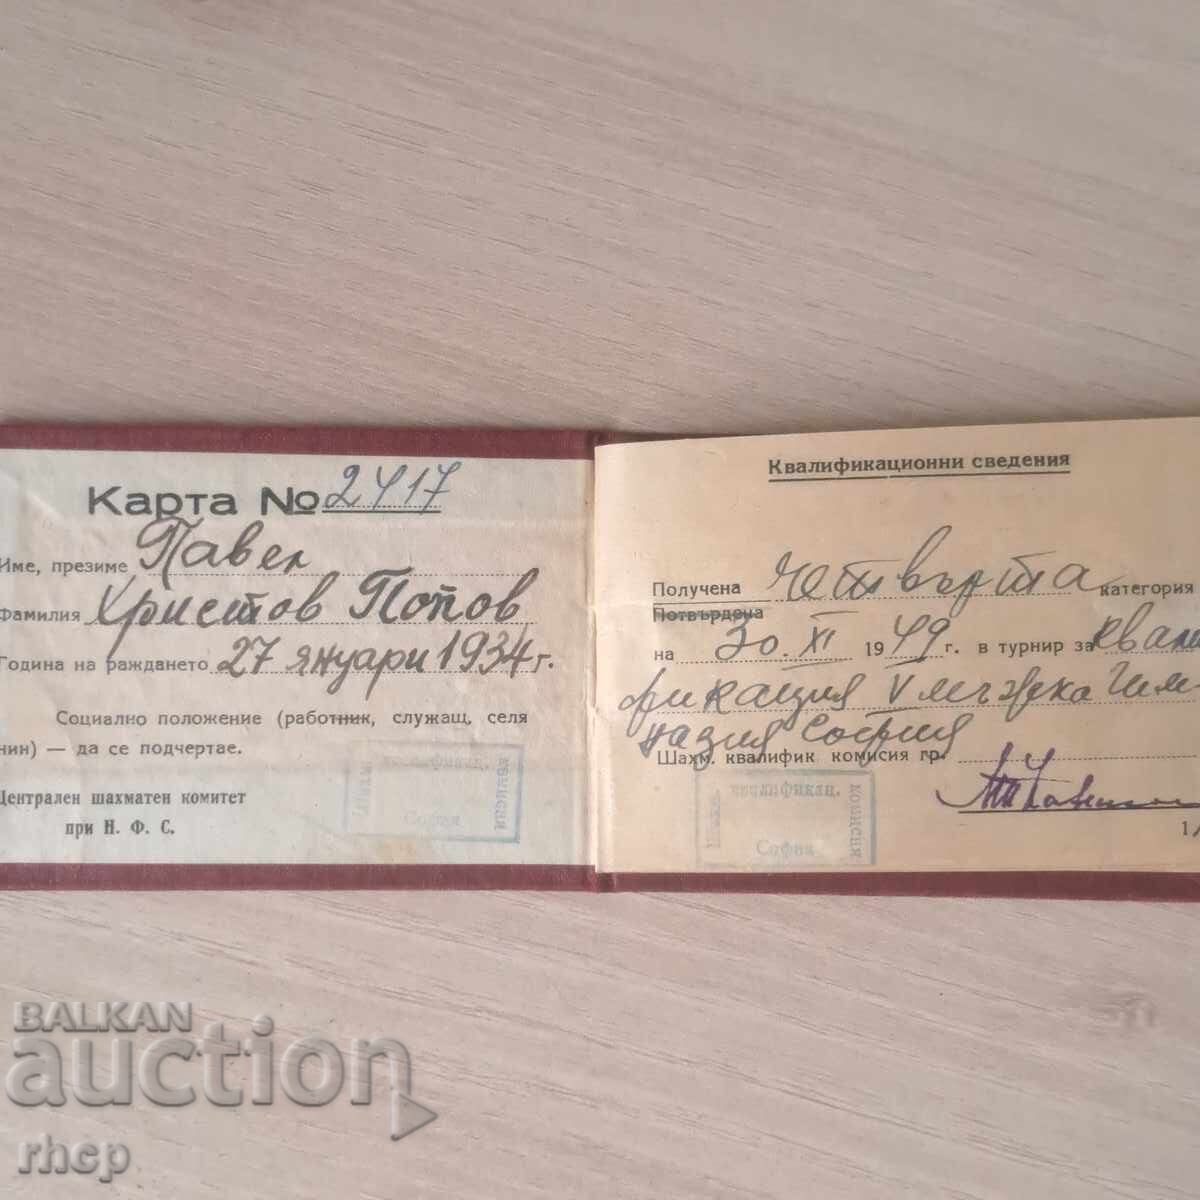 Карта № 2417
Име, презиме Павел
Фамилия Христов Попов
Година на раждането 27 януари 1934 г.
Социално положение (работник, служащ, селя
нин) — да се подчертае.
Централен шахматен комитет
при Н. Ф. С.
квалификац.
комисия
София
Квалификационни сведения
Получена четвърта категория
Потвърдена
на 30. XI 1949 г. в турнир за квали
фикация V мъжка гим-
назия София
Шахм. квалифик комисия гр.
1/
квалификац.
комисия
София
BALKAN
auction
rhcp